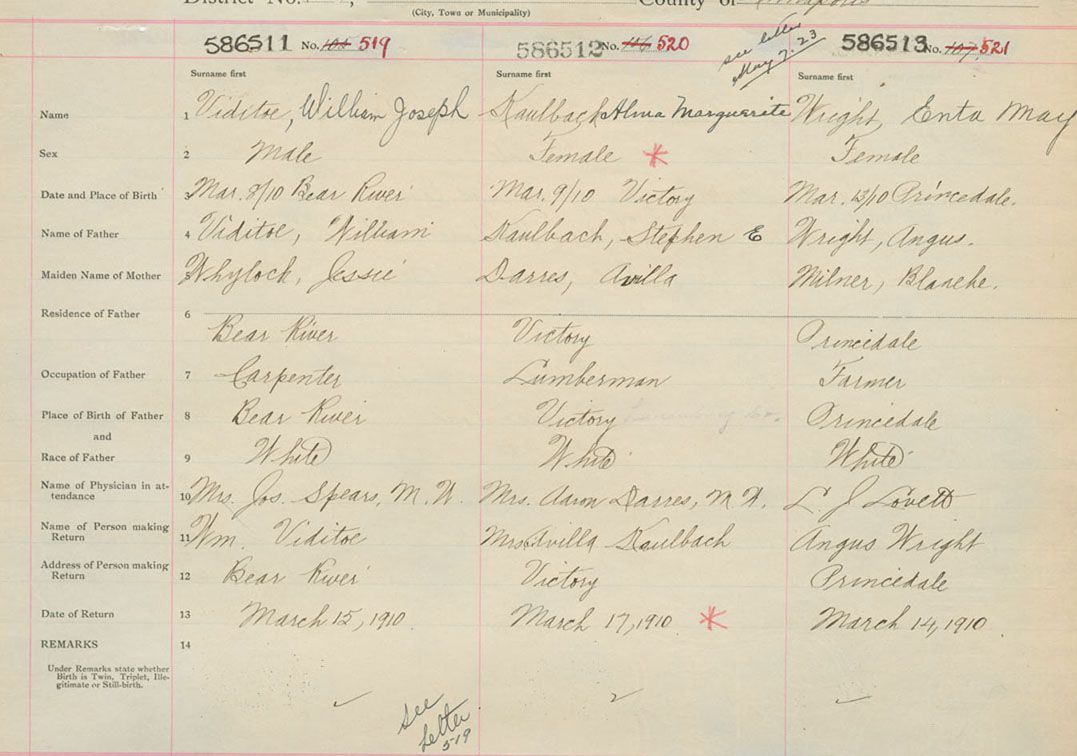 District No. , County of
(City, Town or Municipality)
586511 No. 519 586512 No. 106 520 see letter May 7. 23 586513 No. 107 521
Surname first Surname first Surname first
Name 1 Viditoe, William Joseph Kaulback Alma Marguerite Wright, Enta May
Sex 2 Male Female * Female
Date and Place of Birth 3 Mar. 8/10 Bear River Mar. 9/10 Victory Mar. 13/10 Princedale.
Name of Father 4 Viditoe, William Kaulbach, Stephen E Wright, Angus.
Maiden Name of Mother 5 Whylock, Jessie Darres, Avilla Milner, Blanche.
Residence of Father 6
Bear River Victory Princedale
Occupation of Father 7 Carpenter Lumberman Farmer
Place of Birth of Father 8 Bear River Victory Princedale
and
Race of Father 9 White White White
Name of Physician in at-
tendance 10 Mrs. Jos. Spears, M. W. Mrs. Aaron Darres, M. W. L. J Lovett
Name of Person making
Return 11 Wm. Viditoe Mrs. Avilla Kaulbach Angus Wright
Address of Person making
Return 12 Bear River Victory Princedale
Date of Return 13 March 15, 1910 March 17, 1910 * March 14, 1910
REMARKS 14
Under Remarks state whether
Birth is Twin, Triplet, Ille-
gitimate or Still-birth.
see
letter
519